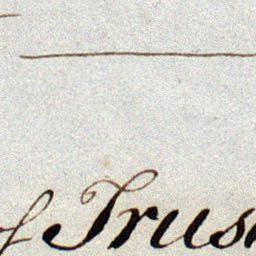 f Trus